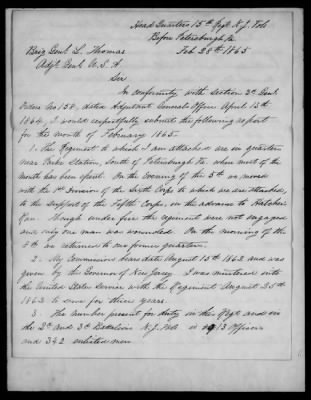 Head Quarters 15th Regt N.J. Vols
Before Petersburgh Va
Feb 28th 1865
Brig Genl L. Thomas
Adjt Genl U.S.A
Sir
In conformity with section 3d Genl
Orders No 158, dated Adjutant Generals Office April 13th
1864, I would respectfully submit the following report
for the month of February 1865.
1. The Regiment to which I am attached are in quarters
near Parks Station, South of Petersburgh Va where most of the
month has been spent. On the evening of the 5th we moved
with the 1st Division of the Sixth Corps to which we are attached,
to the support of the Fifth Corps, in the advance to Hatchers
Run. Though under fire the regiment were not engaged
and only one man was wounded. On the morning of the
we returned to our former quarters.
2. My Commission bears date August 15th 1862 and was
given by the Governor of New Jersey. I was mustered into
the United States Service with the Regiment August 25th
1862 to serve for three years.
3. The number present for duty in the Regt and in
the 2d and 3d Batalions N.J. Vols is 13 Officers
and 342 enlisted men